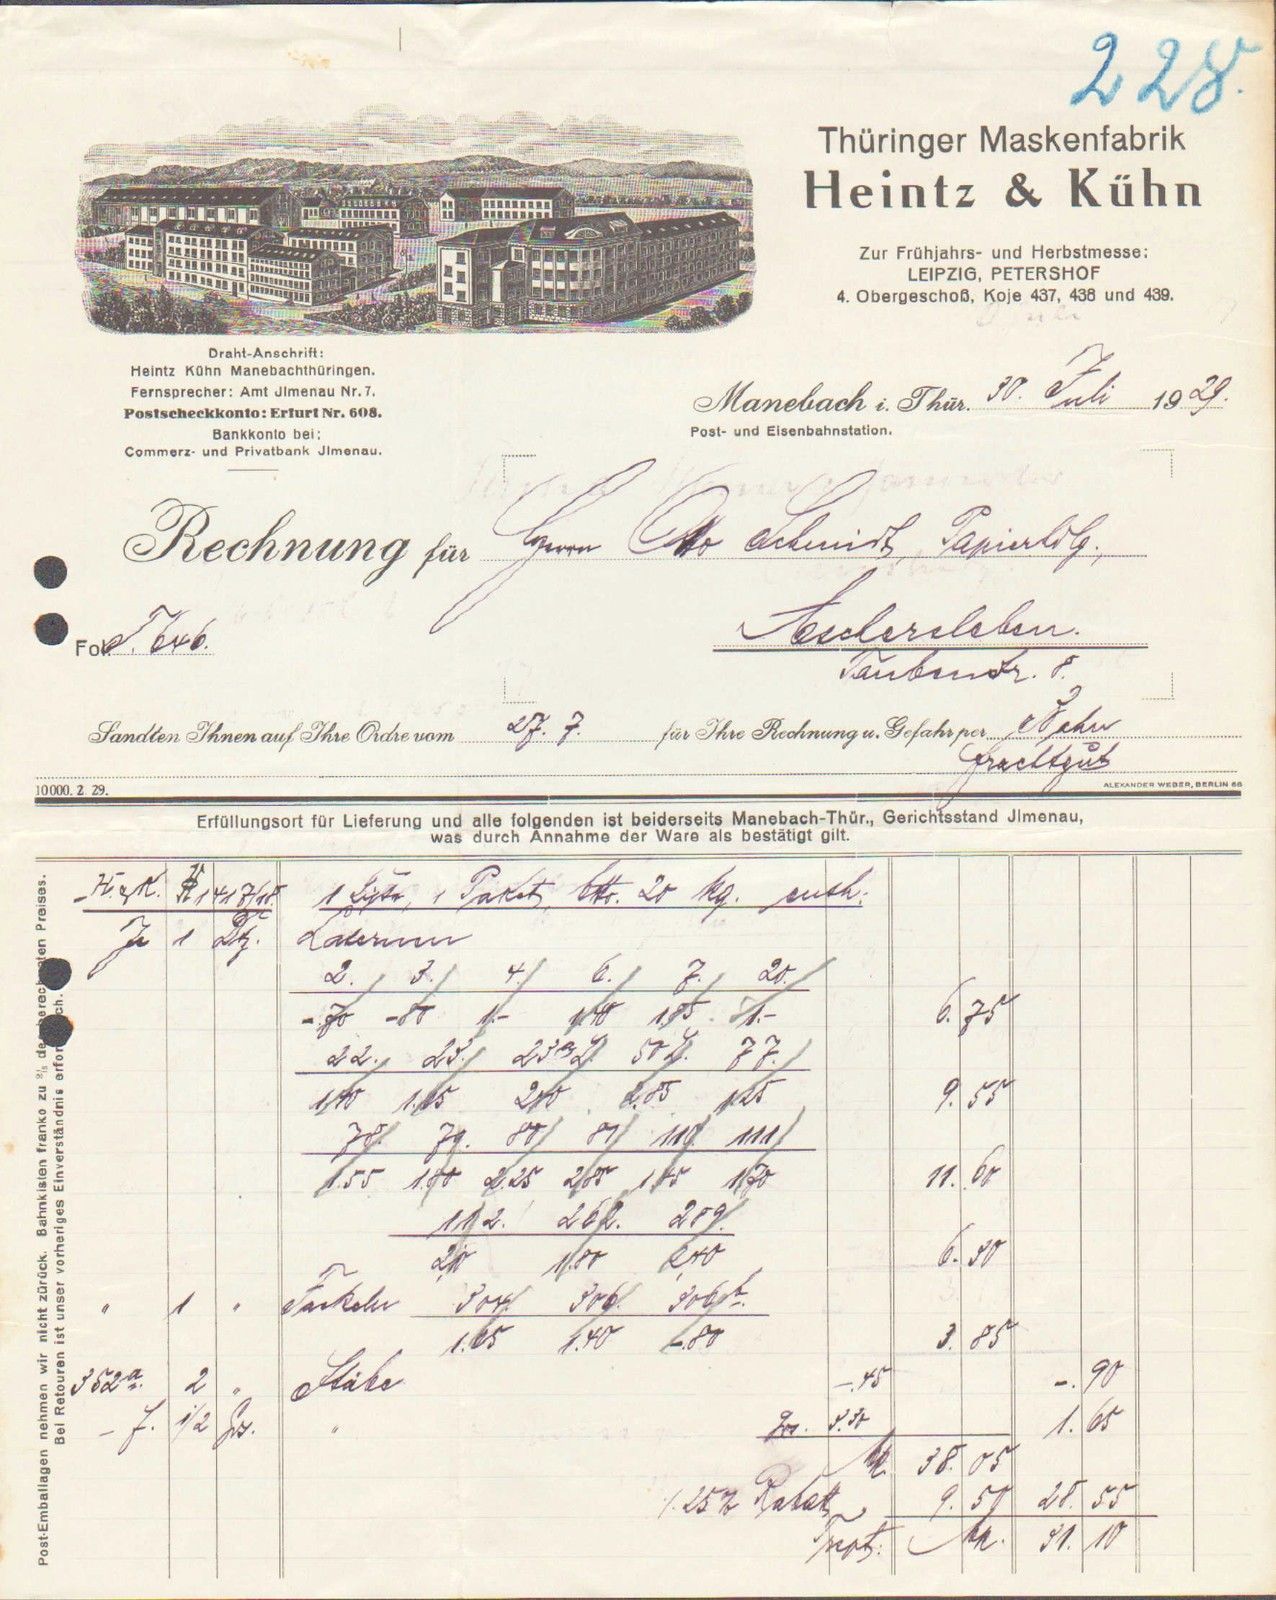 228.
Thüringer Maskenfabrik
Heintz & Kühn
Zur Frühjahrs- und Herbstmesse:
LEIPZIG, PETERSHOF
4. Obergeschoß, Koje 437, 438 und 439.
Draht-Anschrift:
Heintz Kühn Manebachthüringen.
Fernsprecher: Amt Jlmenau Nr. 7.
Postscheckkonto: Erfurt Nr. 608.
Bankkonto bei:
Commerz- und Privatbank Jlmenau.
Manebach i. Thür. 30. Juli 1929.
Post- und Eisenbahnstation.
Rechnung für Herrn Otto Schmidt, Papierhdlg.,
Aschersleben.
Fol. T. 646.
Taubenstr. 8.
Sandten Ihnen auf Ihre Ordre vom 27. 7. für Ihre Rechnung u. Gefahr per Bahn
Frachtgut
10000. 2. 29.
ALEXANDER WEBER, BERLIN 68
Erfüllungsort für Lieferung und alle folgenden ist beiderseits Manebach-Thür., Gerichtsstand Jlmenau,
was durch Annahme der Ware als bestätigt gilt.
H. & K. 1 Kiste, 1 Paket, btto. 20 kg. enth.
Je 1 Dtz. Laternen
2. 3. 4. 6. 7. 20.
-.70 -.80 1.- 1.40 1.85 1.- 6.75
22. 23. 77.
1.40 1.65 2.10 2.85 1.25 9.55
78. 79. 80 81 110 111
1.55 1.80 2.25 2.85 1.45 1.70 11.60
112. 262. 289.
2.10 1.80 2.40 6.30
" 1 " Fackeln 304 306 306b.
1.65 1.40 -.80 3.85
352a. 2 " Stäbe -.45 -.90
- f. 1/2 Grs. " grs. 3.30 1.65
M. 38.05
25% Rabatt 9.50 28.55
M. 31.10
Post-Emballagen nehmen wir nicht zurück. Bahnkisten franko zu 2/3 des berechneten Preises.
Bei Retouren ist unser vorheriges Einverständnis erforderlich.